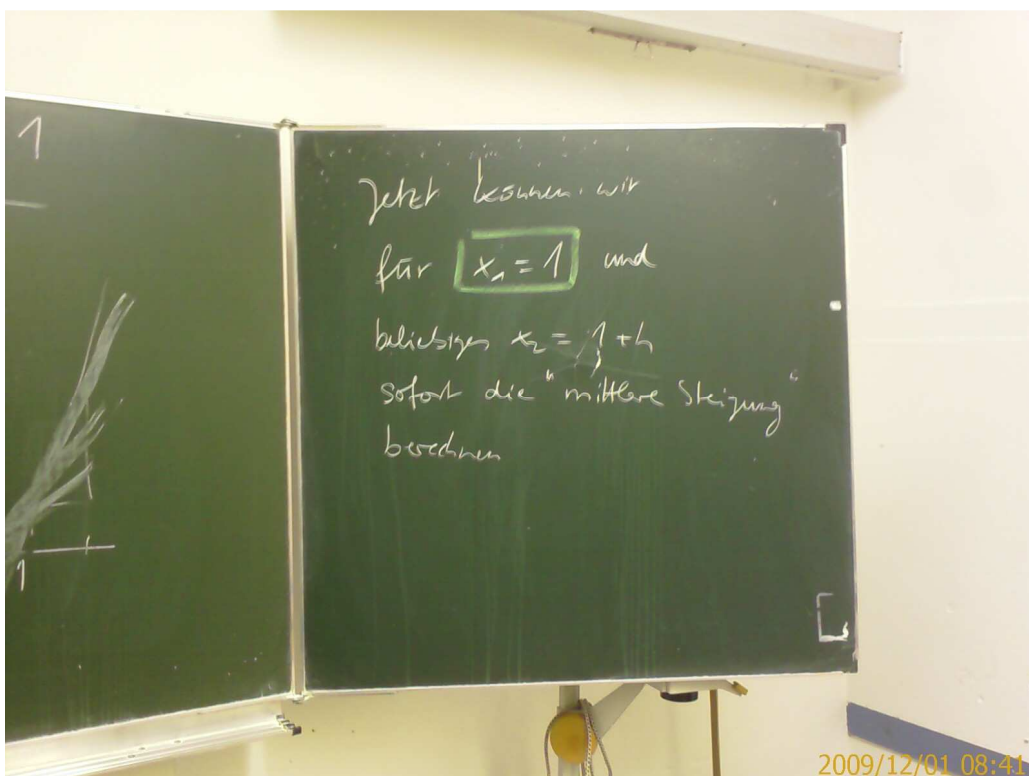 1
1
Jetzt können wir
für x₁ = 1 und
beliebiges x₂ = 1 + h
sofort die "mittlere Steigung"
berechnen
2009/12/01 08:41